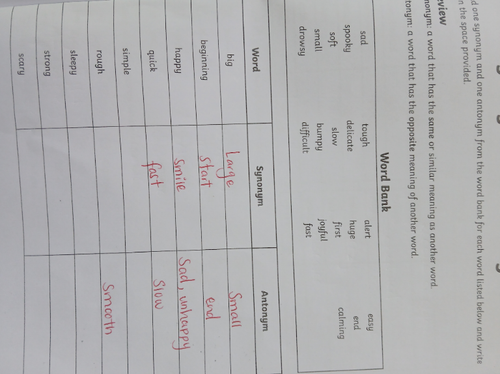 d one synonym and one antonym from the word bank for each word listed below and write
n the space provided.
view
nonym: a word that has the same or similar meaning as another word.
tonym: a word that has the opposite meaning of another word.
Word Bank
sad tough alert easy
spooky delicate huge end
soft slow first calming
small bumpy joyful
drowsy difficult fast
Word Synonym Antonym
big Large Small
beginning start end
happy smile Sad, unhappy
quick fast Slow
simple
rough Smooth
sleepy
strong
scary